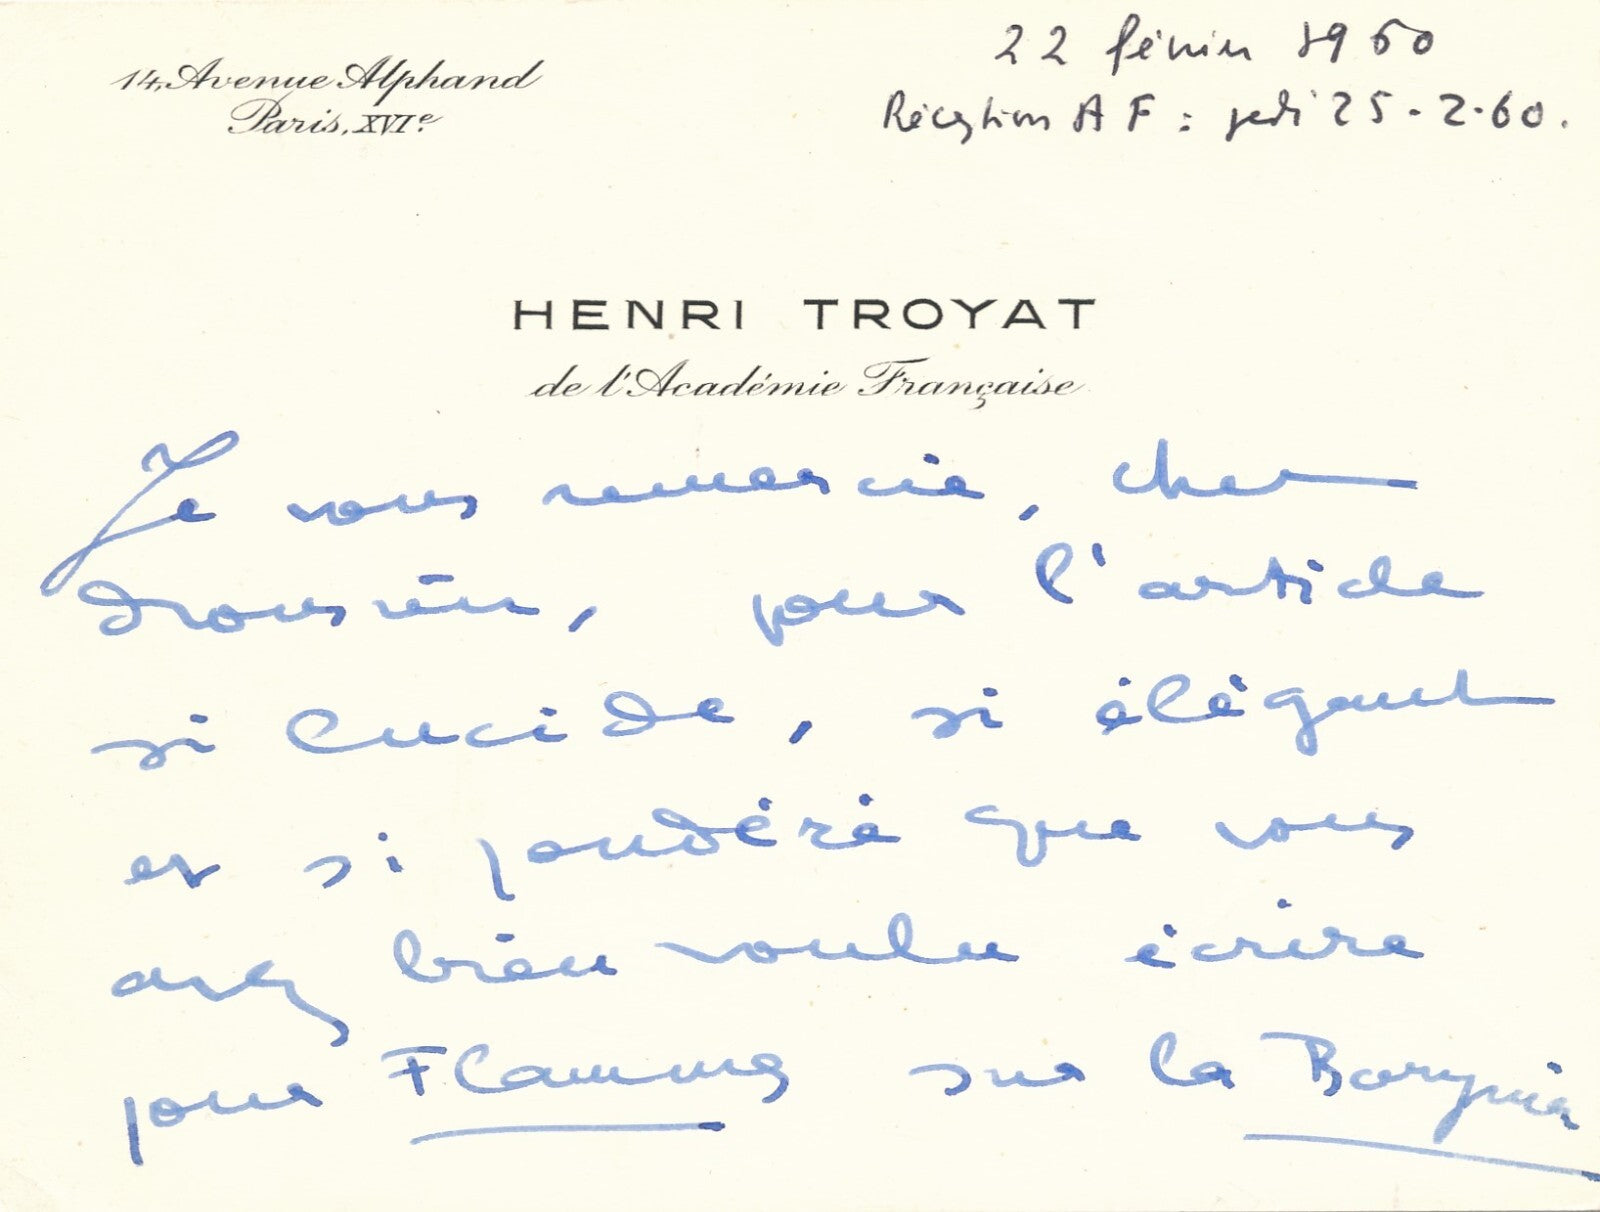 14, Avenue Alphand
Paris, XVIe
22 février 1960
Réception A F : jeudi 25-2-60.
HENRI TROYAT
de l'Académie Française
Je vous remercie, cher
Monsieur, pour l'article
si lucide, si élégant
et si pondéré que vous
avez bien voulu écrire
pour Flammes sur la Barynia